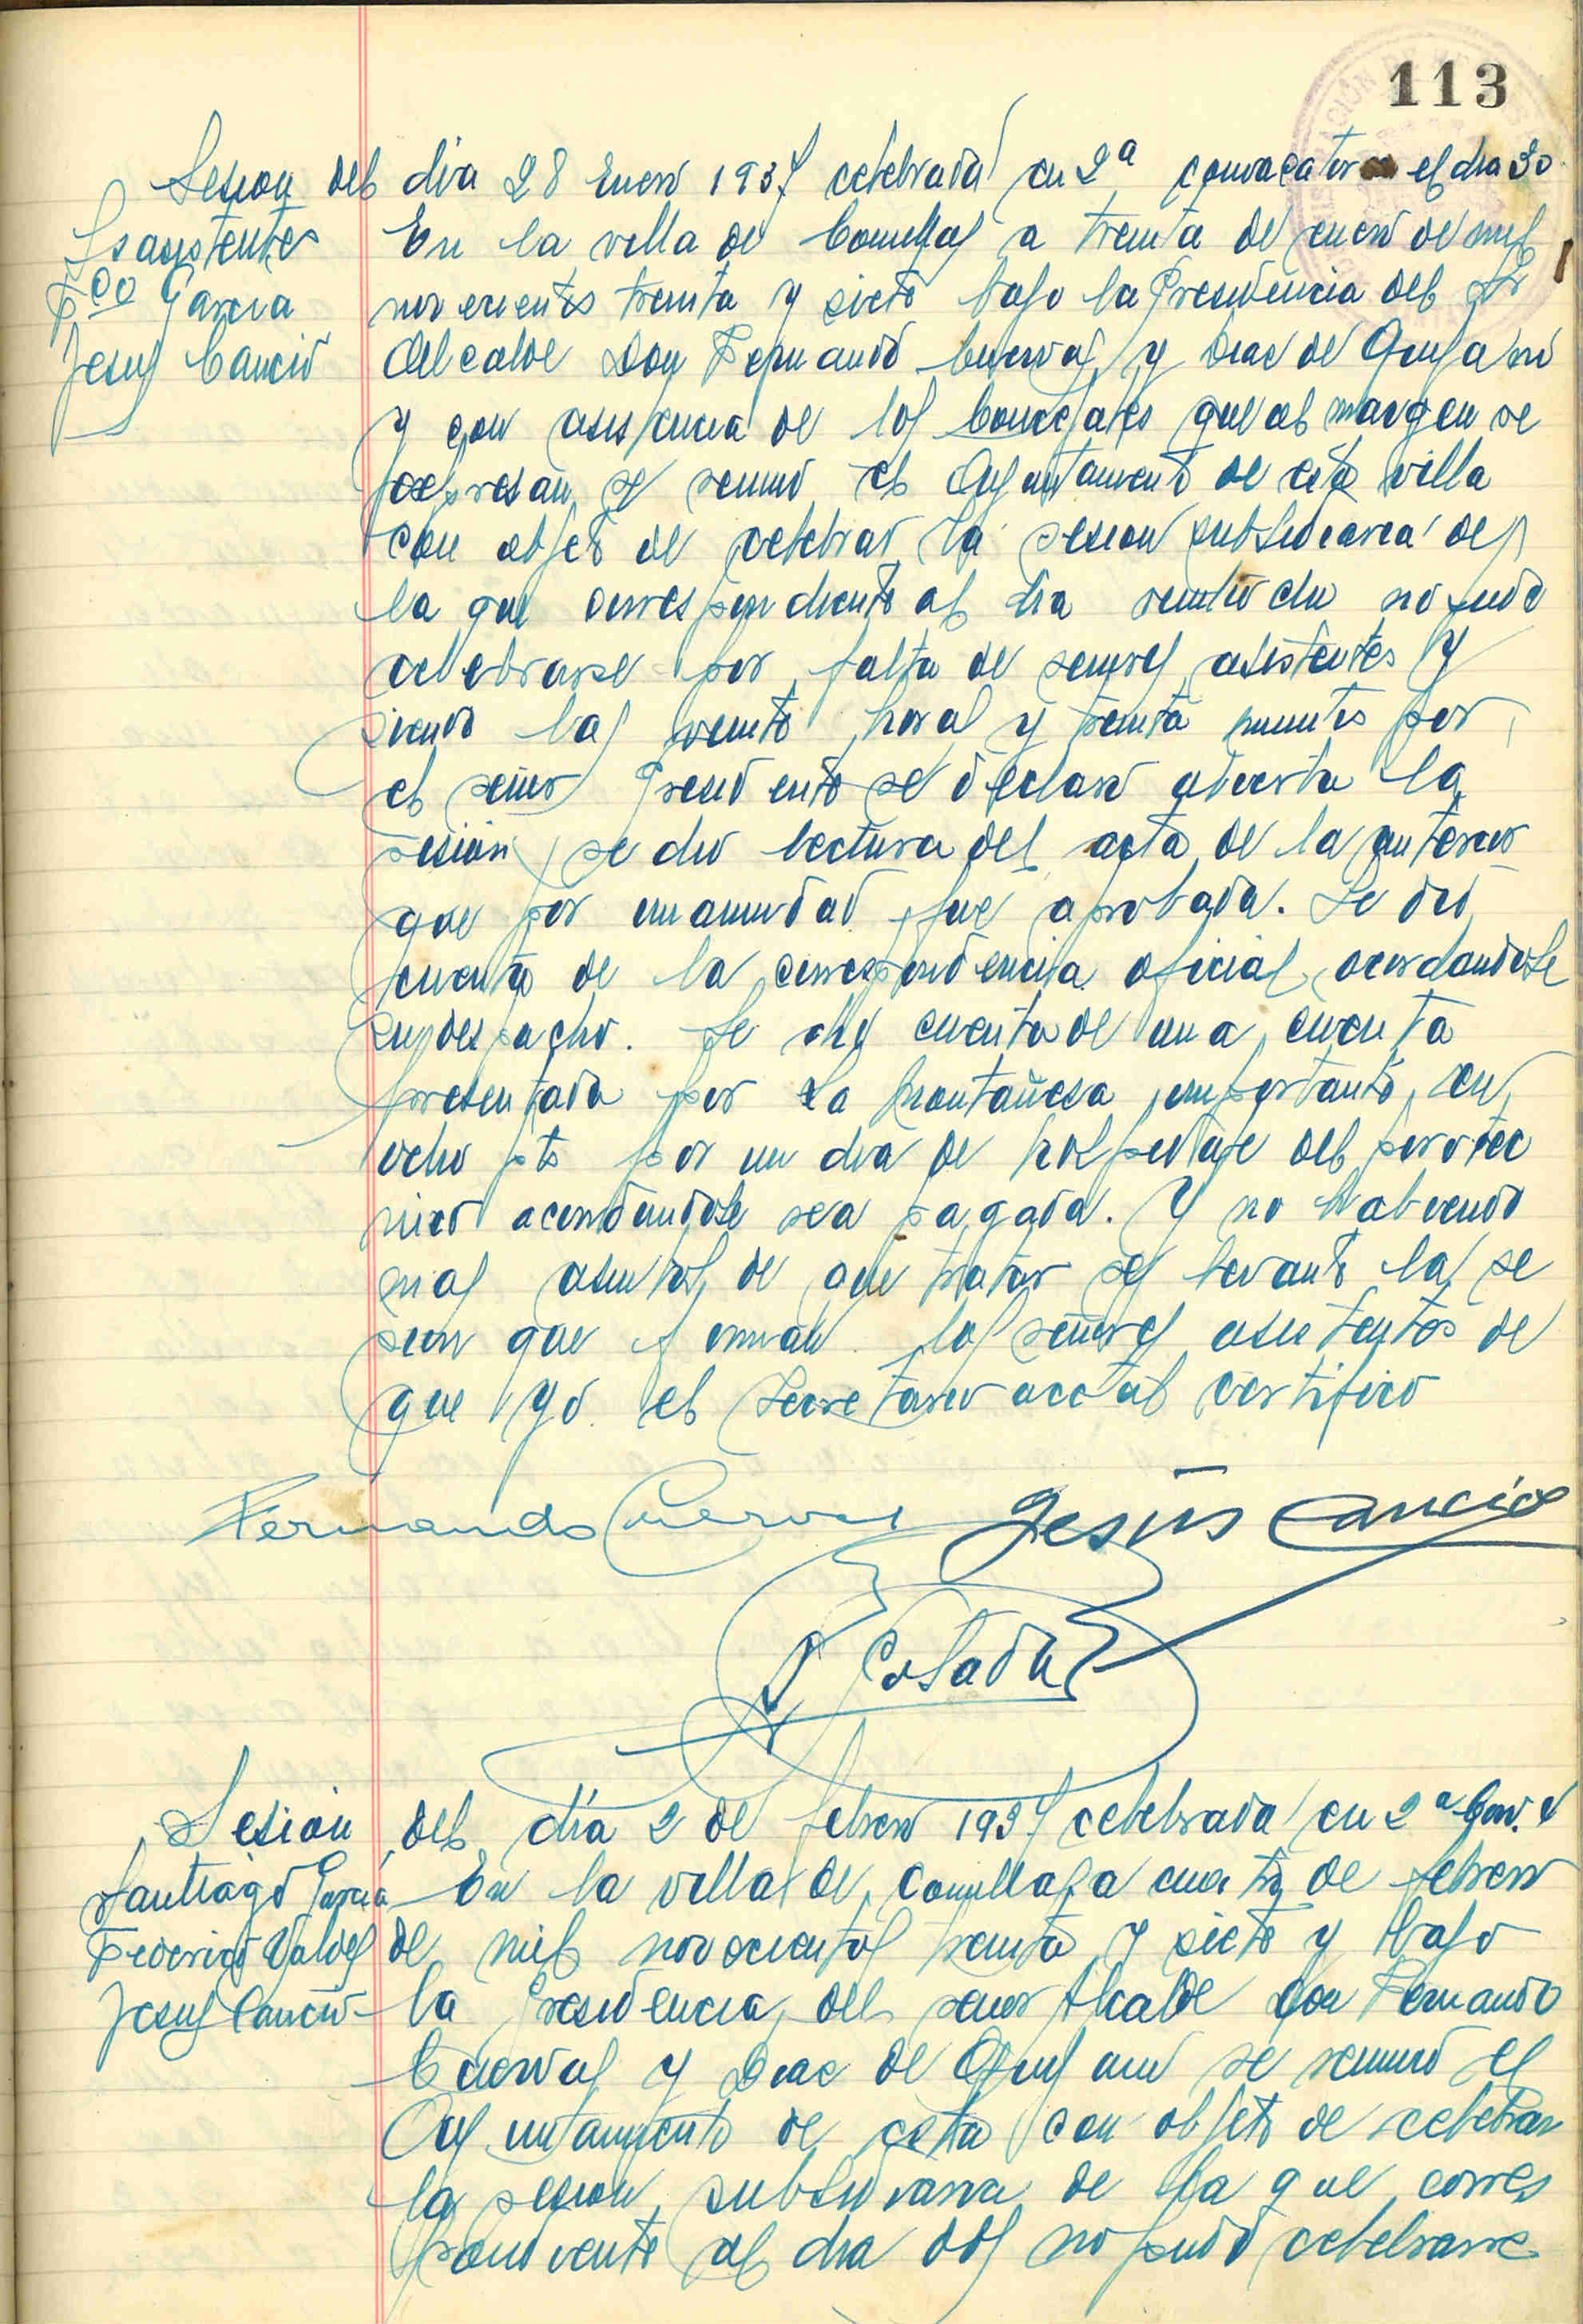 113
Sesion del dia 28 Enero 1937 celebrada en 2ª convocatoria el dia 30
Asistentes
Fco Garcia
Jesus Cancio
En la villa de Comillas a treinta de enero de mil
novecientos treinta y siete bajo la Presidencia del Sr
Alcalde Don Fernando Cuevas y Diac de
y con asistencia de los Concejales que al margen se
expresan se reunio el Ayuntamiento de esta villa
con objeto de celebrar la sesion subsidiaria de
la que correspondiente al dia veintiocho no pudo
celebrarse por falta de señores asistentes y
siendo las veinte horas y treinta minutos por
el señor Presidente se declaro abierta la
sesion se dio lectura del acta de la anterior
que por unanimidad fue aprobada. Se dió
cuenta de la correspondencia oficial acordandose
su despacho. Se dió cuenta de una cuenta
presentada por La Montañesa importante en
ocho pts por un dia de hospedaje del pirotec
nico acordandose sea pagada. Y no habiendo
mas asuntos de que tratar se levanto la se
sion que firman los señores asistentes de
que yo el Secretario acctal certifico
Fernando Cuevas Jesús Cancio
Posada
Sesion del dia 2 de febrero 1937 celebrada en 2ª Conv. 4
Santiago Garcia
Federico Valdes
Jesus Cancio
En la villa de Comillas a cuatro de febrero
de mil novecientos treinta y siete y bajo
la Presidencia del señor Alcalde Don Fernando
Cuevas y Diac de se reunio el
Ayuntamiento de esta con objeto de celebrar
la sesion subsidiaria de la que corres
pondiente al dia dos no pudo celebrarse